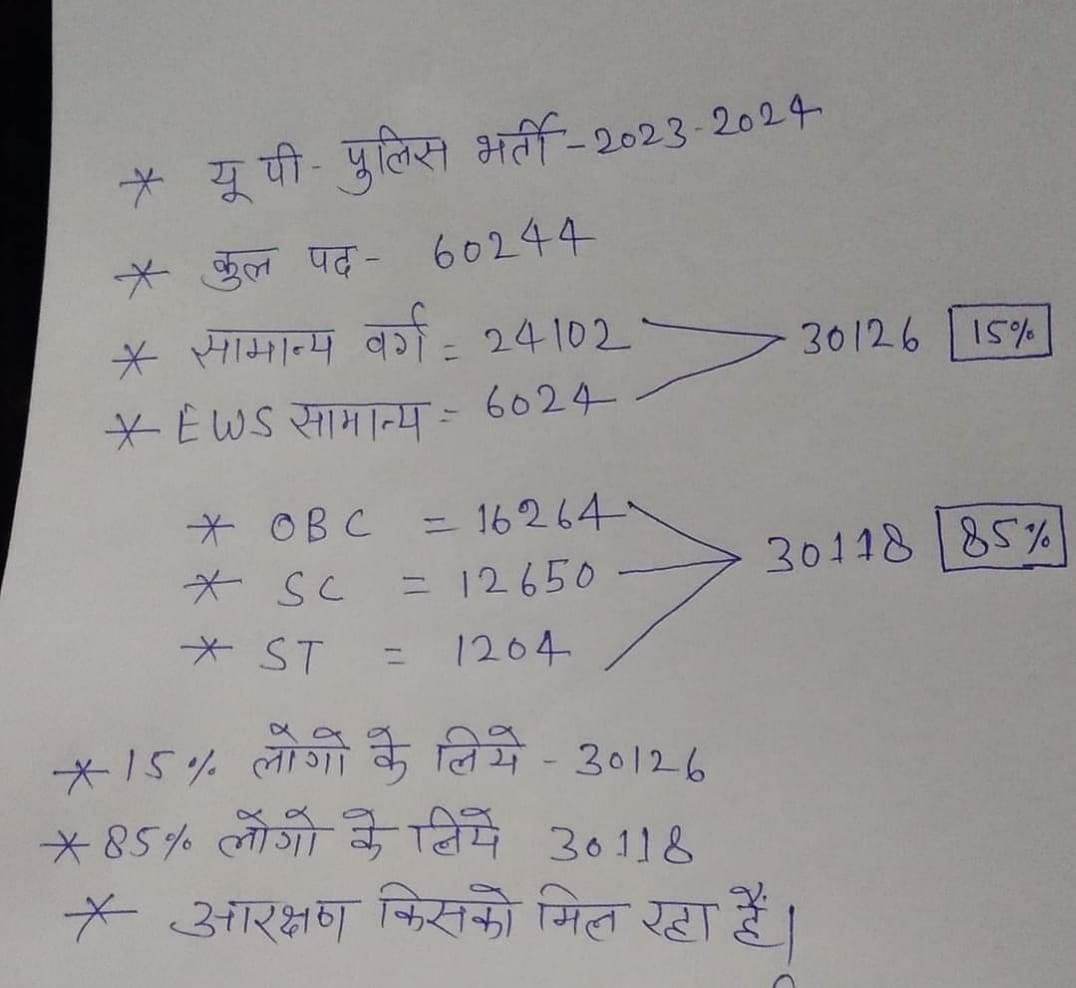 * यू पी - पुलिस भर्ती - 2023-2024
* कुल पद - 60244
* सामान्य वर्ग = 24102 30126 15%
* EWS सामान्य = 6024
* OBC = 16264
* SC = 12650 30118 85%
* ST = 1204
* 15% लोगो के लिये - 30126
* 85% लोगो के लिये 30118
* आरक्षण किसको मिल रहा हैं।